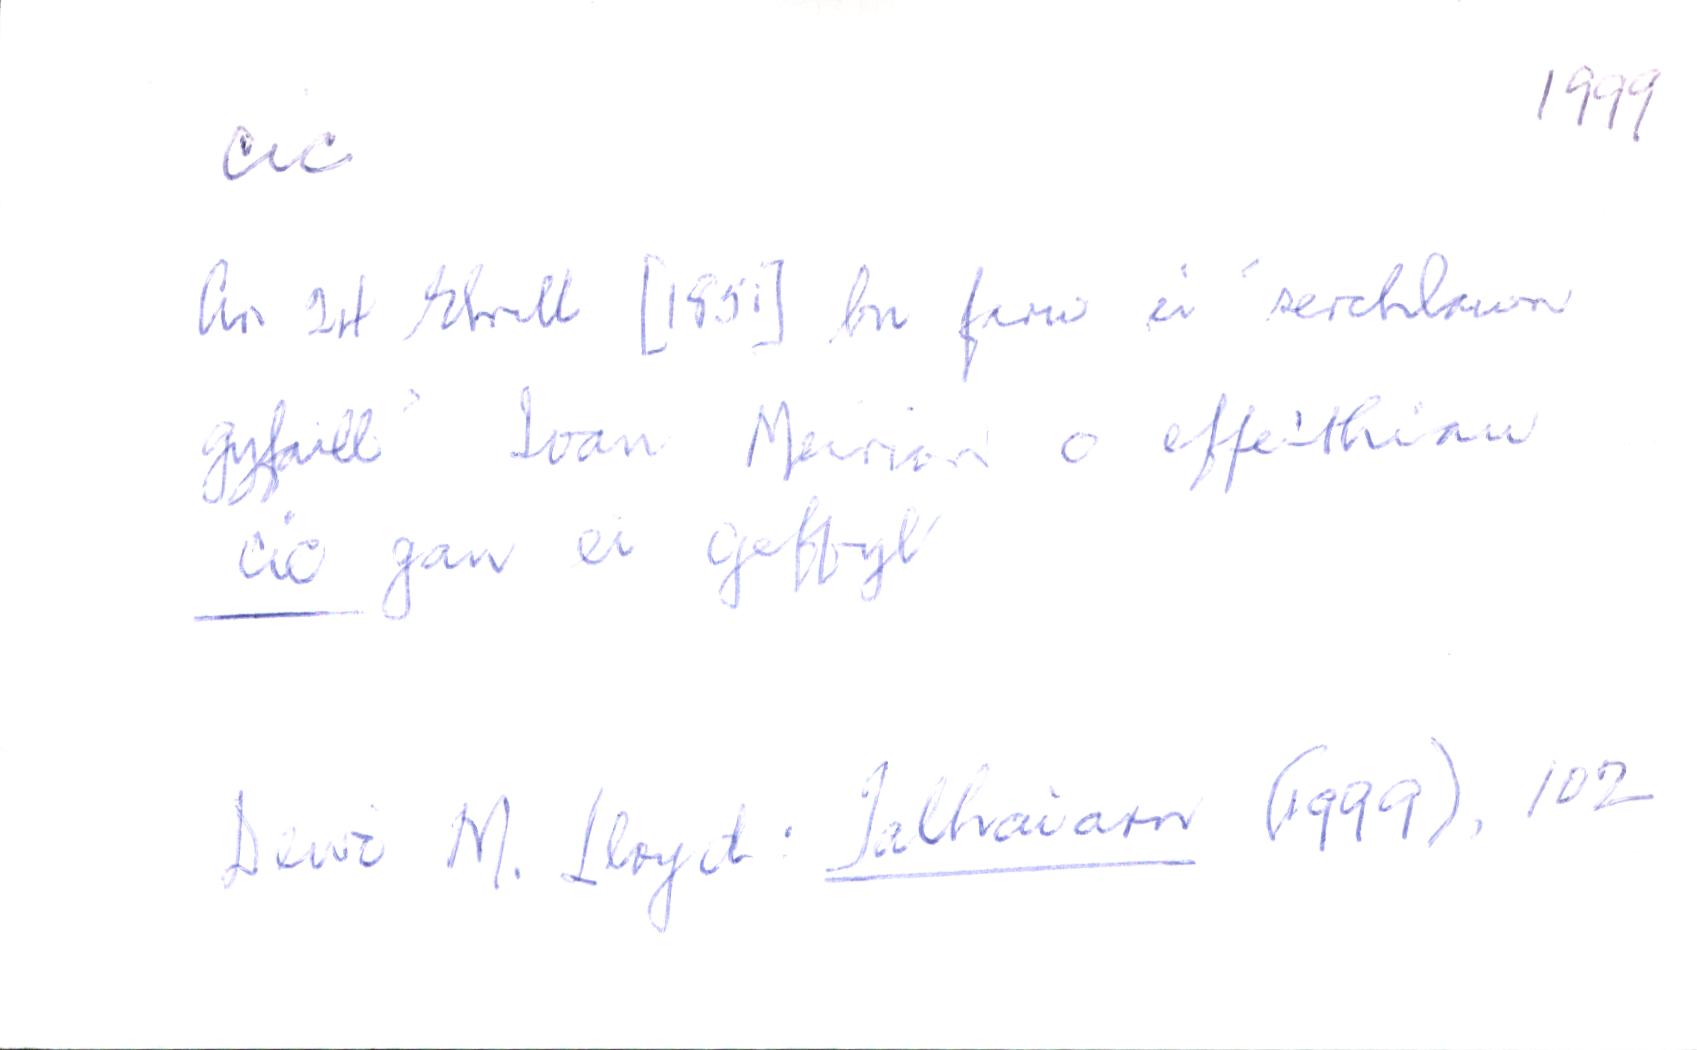 1999
cic
Ar 24 Ebrill [1851] bu farw ei 'serchlawn
gyfaill' Ioan Meirion o effeithiau
cic gan ei geffyl
Dewi M. Lloyd: Talhaiarn (1999), 102